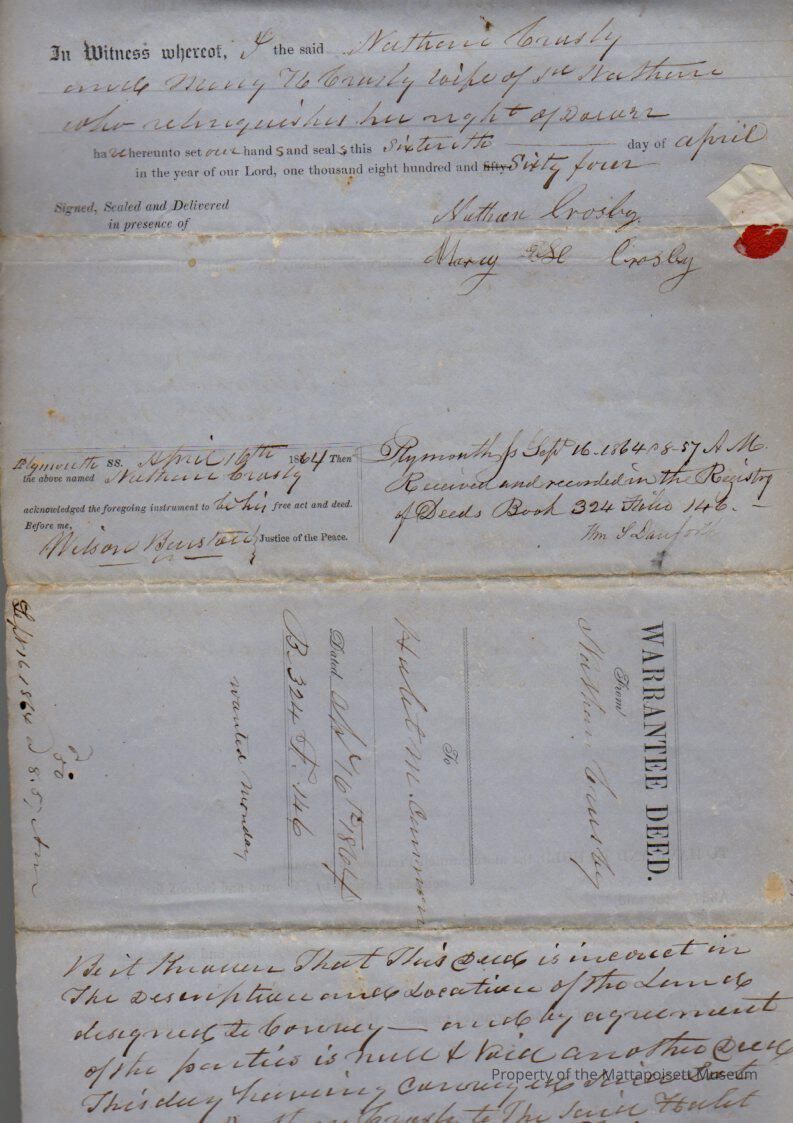 In Witness whereof, I the said Nathan Crosby
and Mary H Crosby wife of sd Nathan
who relinquishes her right of Dower
have hereunto set our hands and seals this Sixteenth day of April
in the year of our Lord, one thousand eight hundred and fifty Sixty four
Signed, Sealed and Delivered
in presence of
Nathan Crosby
Mary H Crosby
Plymouth SS. April 16th 1864 Then
the above named Nathan Crosby
acknowledged the foregoing instrument to be his free act and deed.
Before me,
Wilson Justice of the Peace.
Plymouth ss Sept 16. 1864 8-57 A.M.
Received and recorded in the Registry
of Deeds Book 324 Folio 146.
Wm S Danforth
WARRANTEE DEED.
From
Nathan Crosby
To
Dated Ap 16th 1864
B. 324 F. 146
wanted Monday
50
Sept 16 1864 8.57 Am
Be it Known That This Deed is incorrect in
The Description and Location of the Land
designed to Convey — and by agreement
of the parties is null & Void another Deed
This day having
Crosby to The Said
Property of the Mattapoisett Museum